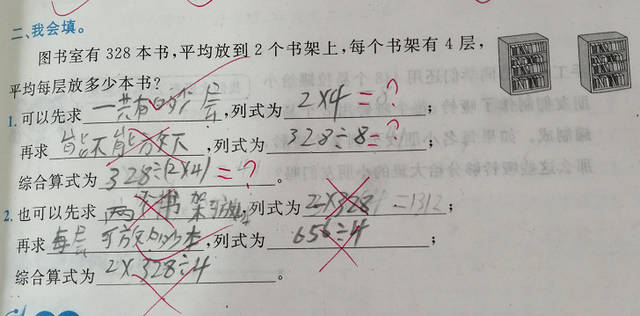 二、我会填。
图书室有 328 本书,平均放到 2 个书架上,每个书架有 4 层,
平均每层放多少本书?
1. 可以先求 一共有 层 ,列式为 2×4= ? ;
再求 能不能放下 ,列式为 328÷8= ? ;
综合算式为 328÷(2×4) = ? 。
2. 也可以先求 两 书架 ,列式为 2×328 =1312 ;
再求 每层 可放 本 ,列式为 656÷4 ;
综合算式为 2×328÷4 。